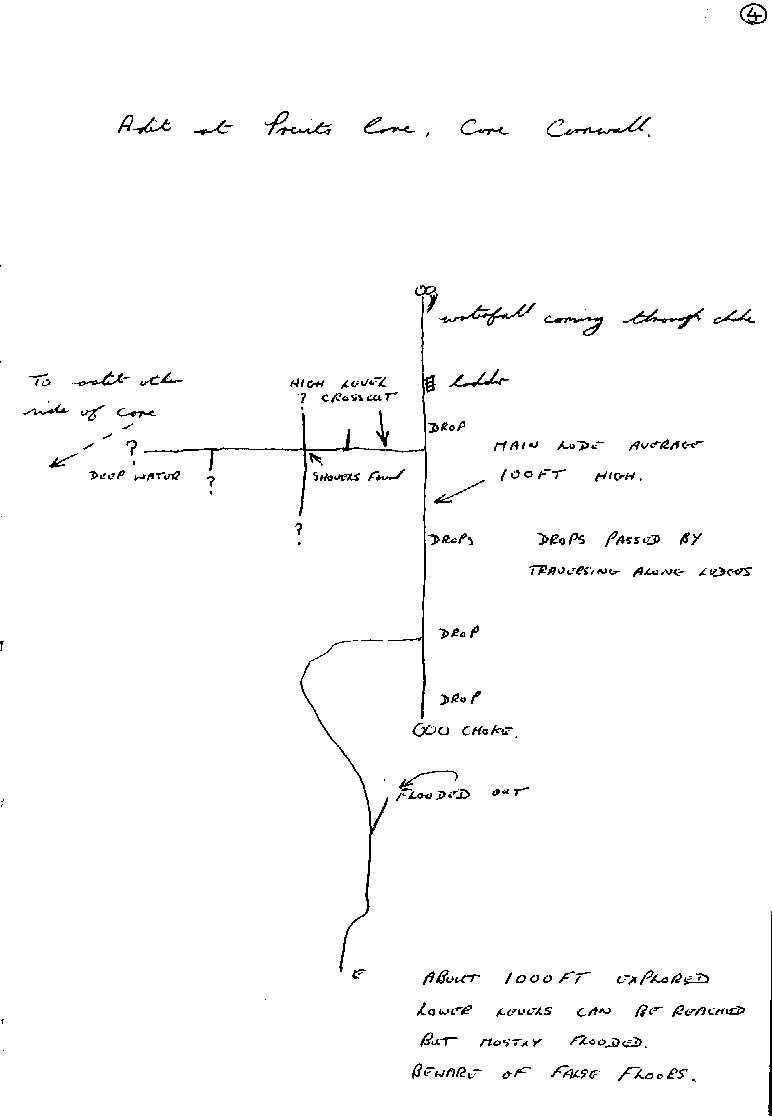 4
Adit at Cove, Cove Cornwall.
waterfall coming through
ladder
To other
side of cove
HIGH LEVEL
? CROSSCUT
DROP
MAIN LODE AVERAGE
100FT HIGH.
?
DEEP WATER
?
SHOVELS FOUND
?
DROPS
DROPS PASSED BY
TRAVERSING ALONG LEDGES
DROP
DROP
CHOKE.
FLOODED OUT
E
ABOUT 1000FT EXPLORED
LOWER LEVELS CAN BE REACHED
BUT MOSTLY FLOODED.
BEWARE OF FALSE FLOORS.